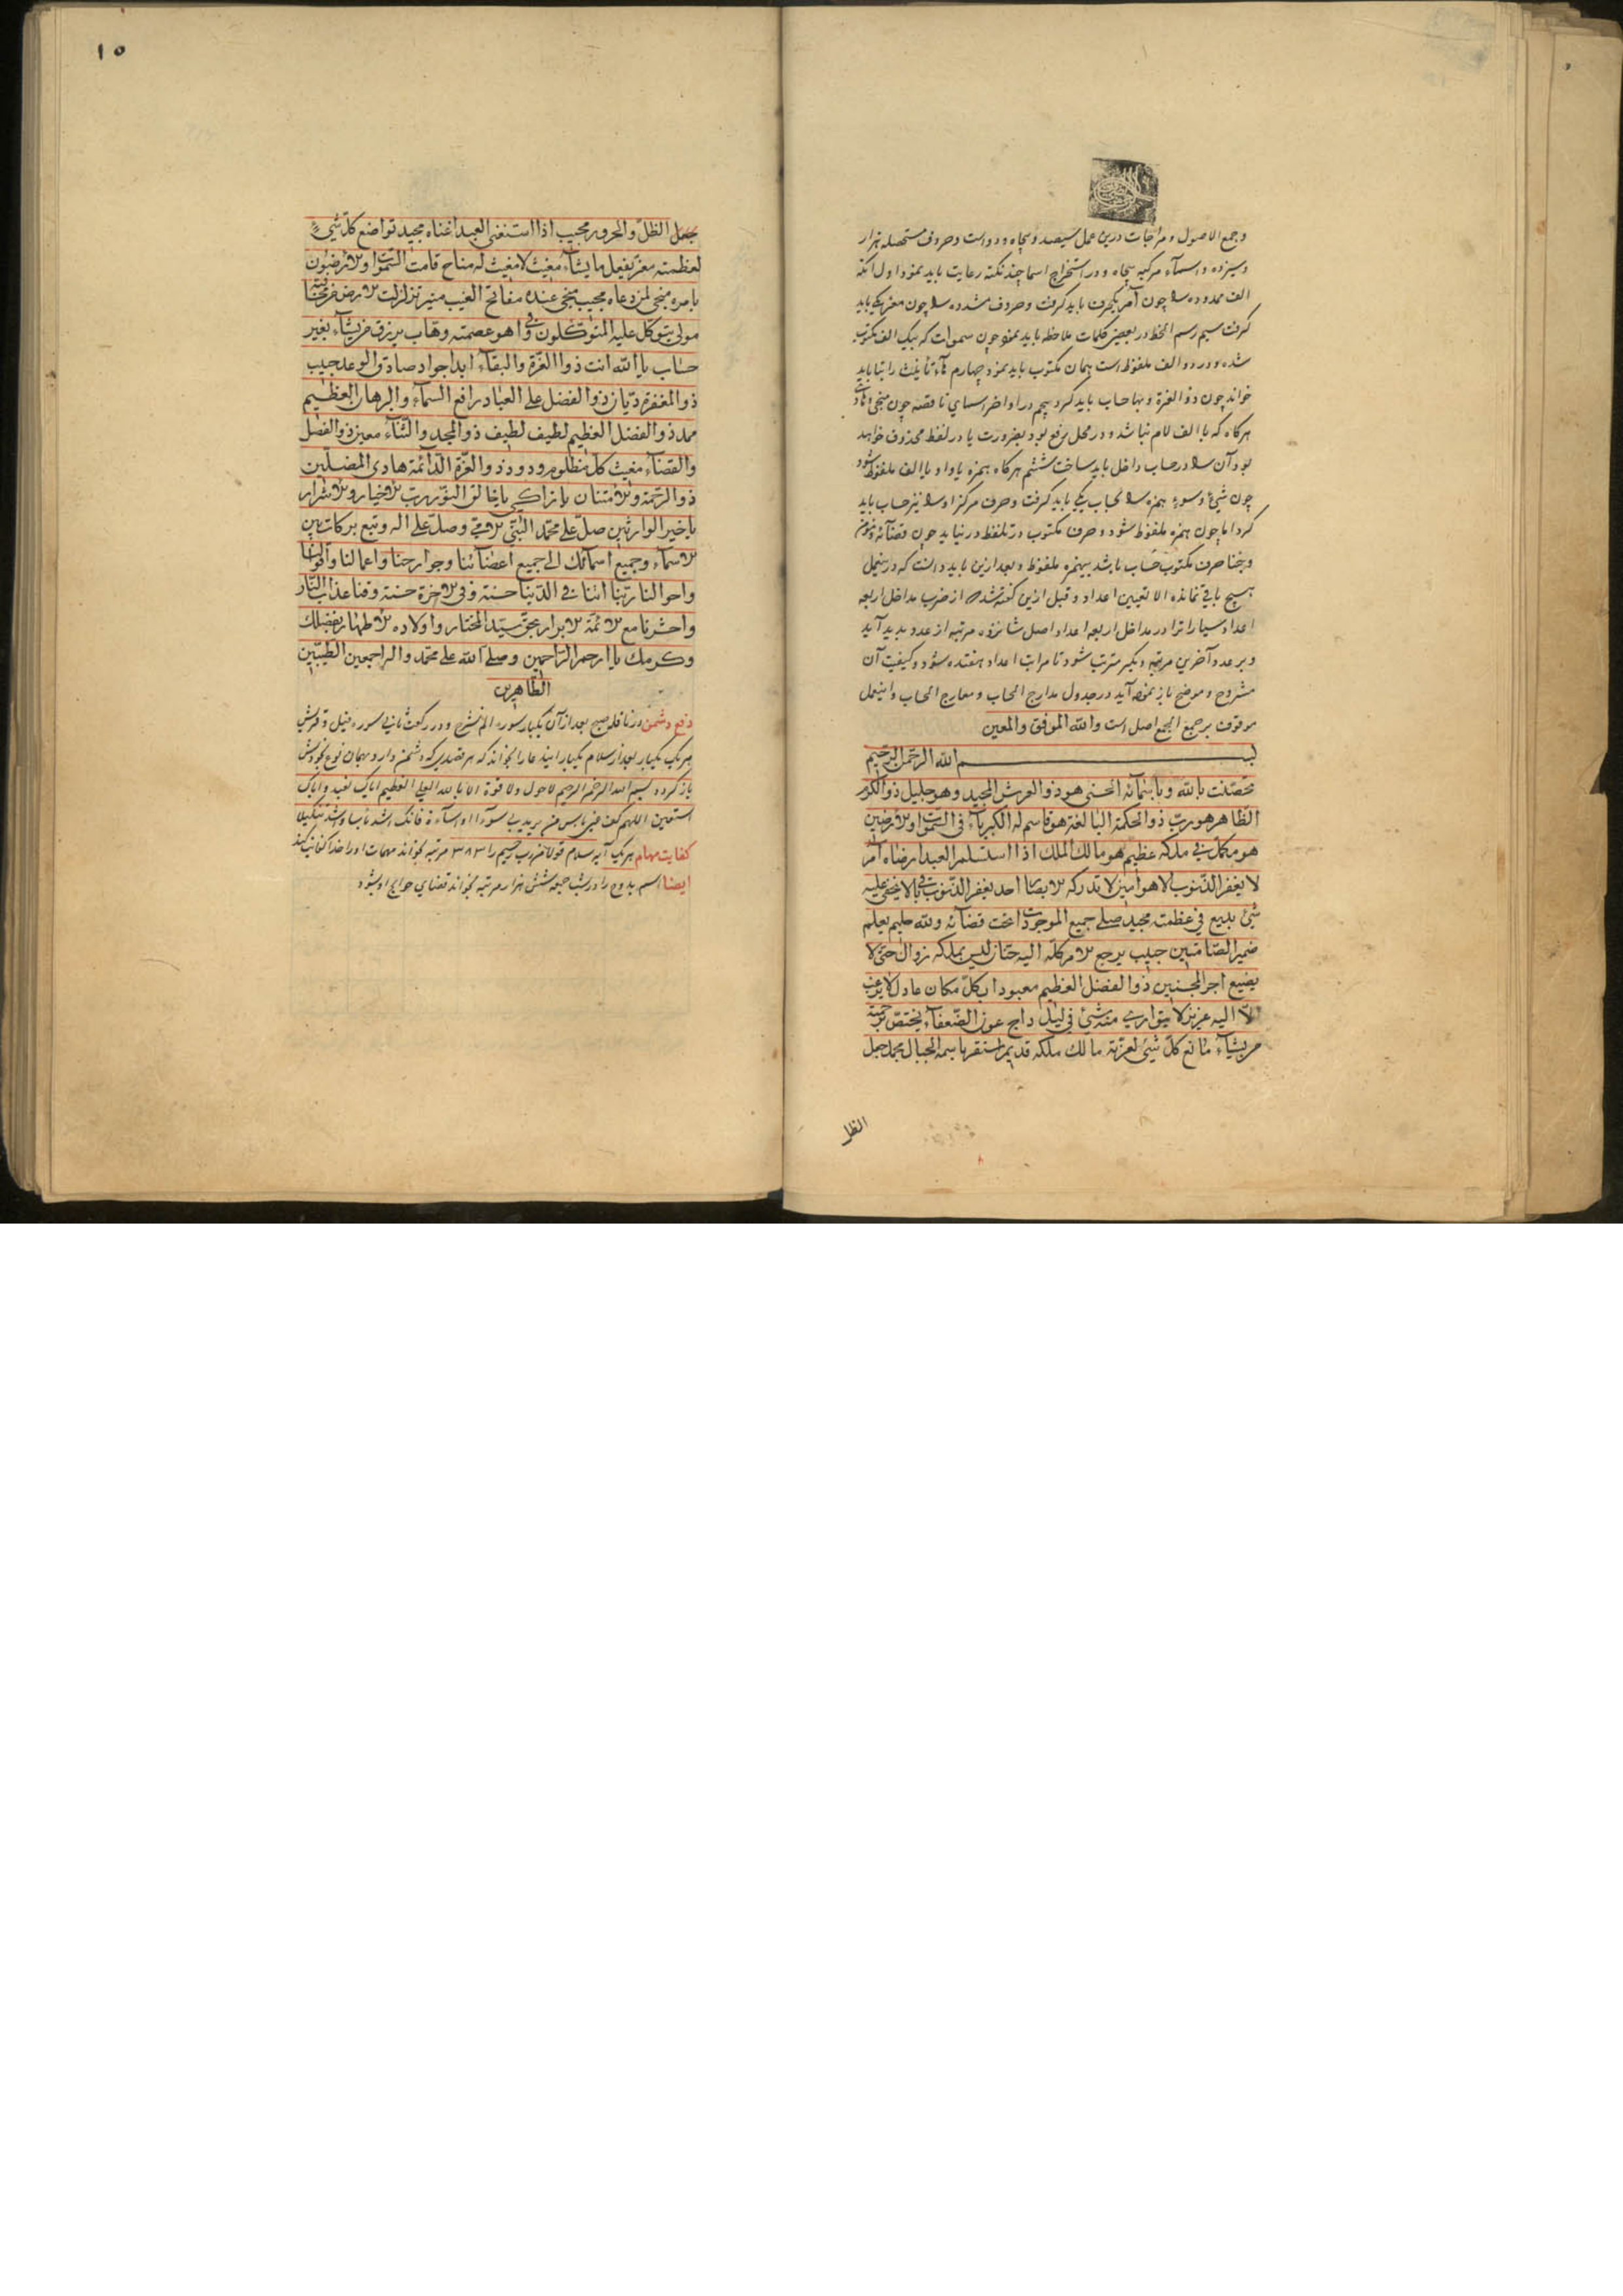 و جمع الاصول و مزاجات درین عمل سیصد و پنجاه و دو است و حروف مستحصله هزار
و سیزده و اسمآء مرکبه پنجاه و در استخراج اسما چند نکته رعایت باید نمود اول آنکه
الف ممدوده را چون آمر یکحرف باید گرفت و حروف مشدده را چون معز یکی باید
گرفت سیم رسم الخط در بعضی کلمات ملاحظه باید نمود چون سموات که بیک الف مکتوب
شده و در دو الف ملفوظ است بهمان مکتوب باید نمود چهارم هآء تأنیث را بتا باید
خواند چون ذو العزة و بها حساب باید کرد پنجم در اواخر اسمای ناقصه چون منجی
هرگاه که با الف لام نباشد و در محل رفع بود بضرورت یا در لفظ محذوف خواهد
بود آن را در حساب داخل باید ساخت ششم هرگاه همزه یا واو یا الف ملفوظ شود
چون شیئ و سوء همزه را بحساب یکی باید گرفت و حرف مرکز او را نیز حساب باید
کرد اما چون همزه ملفوظ شود و حرف مکتوب در تلفظ در نیاید چون قضآئه
حرف مکتوب حساب باشد بیهمزه ملفوظ و بعد ازین باید دانست که درین عمل
هیچ باقی نمانده الا تعیین اعداد و قبل ازین گفته شد که از ضرب مداخل اربعه
اعداد سیارا ترا در مداخل اربعه اعداد اصل شانزده مرتبه از عدد پدید آید
و بر عدد آخرین مرتبه دیگر مترتب شود تا مراتب اعداد هفتده شود و کیفیت آن
مشروح و موضح باز نموده آید در جدول مدارج الحساب و معارج الحساب و اینعمل
موقوف بر جمع الجمع اصل است والله الموفق والمعین
بسم الله الرحمن الرحیم
تحصّنت بالله وباسمآئه الحسنى هو ذو العرش المجید وهو جلیل ذو الکرم
الظاهر هو ربّ ذو الحکمة البالغة هو قاسم له الکبریآء فی السّموات والارضین
هو مکمل فی ملکه عظیم هو مالك الملك اذا استسلم العبد ارضاه آمر
لا یغفر الذّنوب الا هو امین لا تدرکه الابصار احد یغفر الذّنوب لا یخفی علیه
شئ بدیع فی عظمته مجید جمیع الموجودات تحت قضآئه ولله حلیم یعلم
ضمیر الصّامتین حبیب یرجع الامر کلّه الیه حنّان لیس بملکه زوال حىّ لا
یضیع اجر المحسنین ذو الفضل العظیم معبود بکلّ مکان عادل لا یرغب
الّا الیه عزیز لا یتواری منه شئ فی لیل داج عون الضّعفآء یختصّ برحمته
من یشآء مانع کلّ شئ لعزّته مالك ملکه قدیم استقر باسمه الجبال جعل
الظل
١٥
جعل الظلّ والحرور مجیب اذا استغنى العبد اغناه مجید تواضع کلّ شئ
لعظمته معزّ یفعل ما یشآء مغیث لا مغیث له مناح قامت السّموات والارضون
بامره منجی لمن دعاه مجیب منجی عنده مفاتح الغیب منیر تزلزلت الارض من
مولى یتوکّل علیه المتوکّلون هو عصمته وهّاب یرزق من یشآء بغیر
حساب یا الله انت ذو العزّة والبقآء ابدا جواد صادق الوعد حبیب
ذو المغفرة دیّان ذو الفضل على العباد رافع السمآء والبرهان العظیم
ممد ذو الفضل العظیم لطیف لطیف ذو المجد والثّنآء معین ذو الفضل
والقضآء مغیث کلّ مظلوم ودود ذو العزّة الدّآئمة هادی المضلّین
ذو الرّحمة والامتنان یا زاکی یا خالق النّور ربّ الاخیار والاشرار
یا خیر الوارثین صلّ على محمّد النّبىّ الامّی وصلّ على اله وتبع برکات هذه
الاسمآء وجمیع اسمآئك الى جمیع اعضآئنا وجوارحنا واعمالنا واقوالنا
واحوالنا ربّنا اتنا فی الدّنیا حسنة وفی الاخرة حسنة وقنا عذاب النّار
واحشرنا مع الائمّة الابرار بحقّ سیّد المختار واولاده الاطهار بفضلك
وکرمك یا ارحم الرّاحمین وصلّى الله على محمّد واله اجمعین الطیّبین
الطّاهرین
دفع دشمن در نافله صبح بعد از آن یکبار سوره الم نشرح و در رکعت ثانی سوره فیل و قریش
هر یک یکبار بعد از سلام یکبار اینند عا را بخواند که هر قصدی که دشمن دارد بهمان نوع بخودش
باز گردد بسم الله الرحمن الرحیم لا حول ولا قوة الا بالله العلی العظیم ایاك نعبد وایاك
نستعین اللهم کف عنی باس من یرید بی سوءا او اسآءة فانك اشد باسا واشد تنکیلا
کفایت مهام هر یک آیه سلام قولا من رب رحیم را ٣٨٣ مرتبه بخواند مهمات او را خدا کفایت کند
ایضا اسم بدوح را در شب جمعه شش هزار مرتبه بخواند قضای حوایج او شود